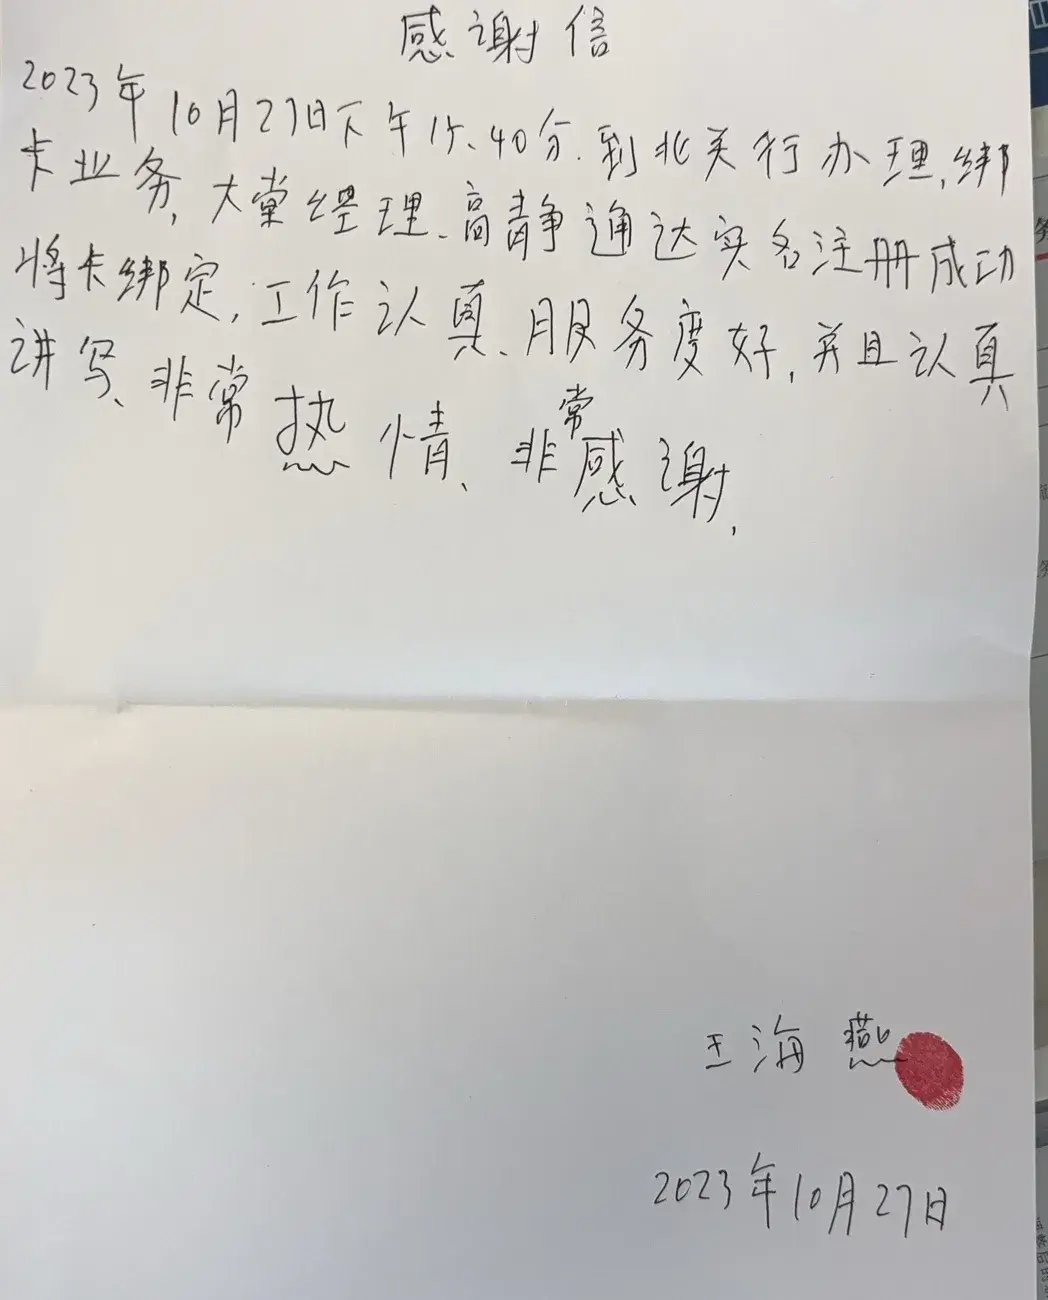 感谢信
2023年10月27日下午1点40分.到北关行办理,绑
卡业务,大堂经理、高静通达实名注册成功
将卡绑定,工作认真、服务度好,并且认真
讲写、非常热情、非常感谢,
王海燕
2023年10月27日